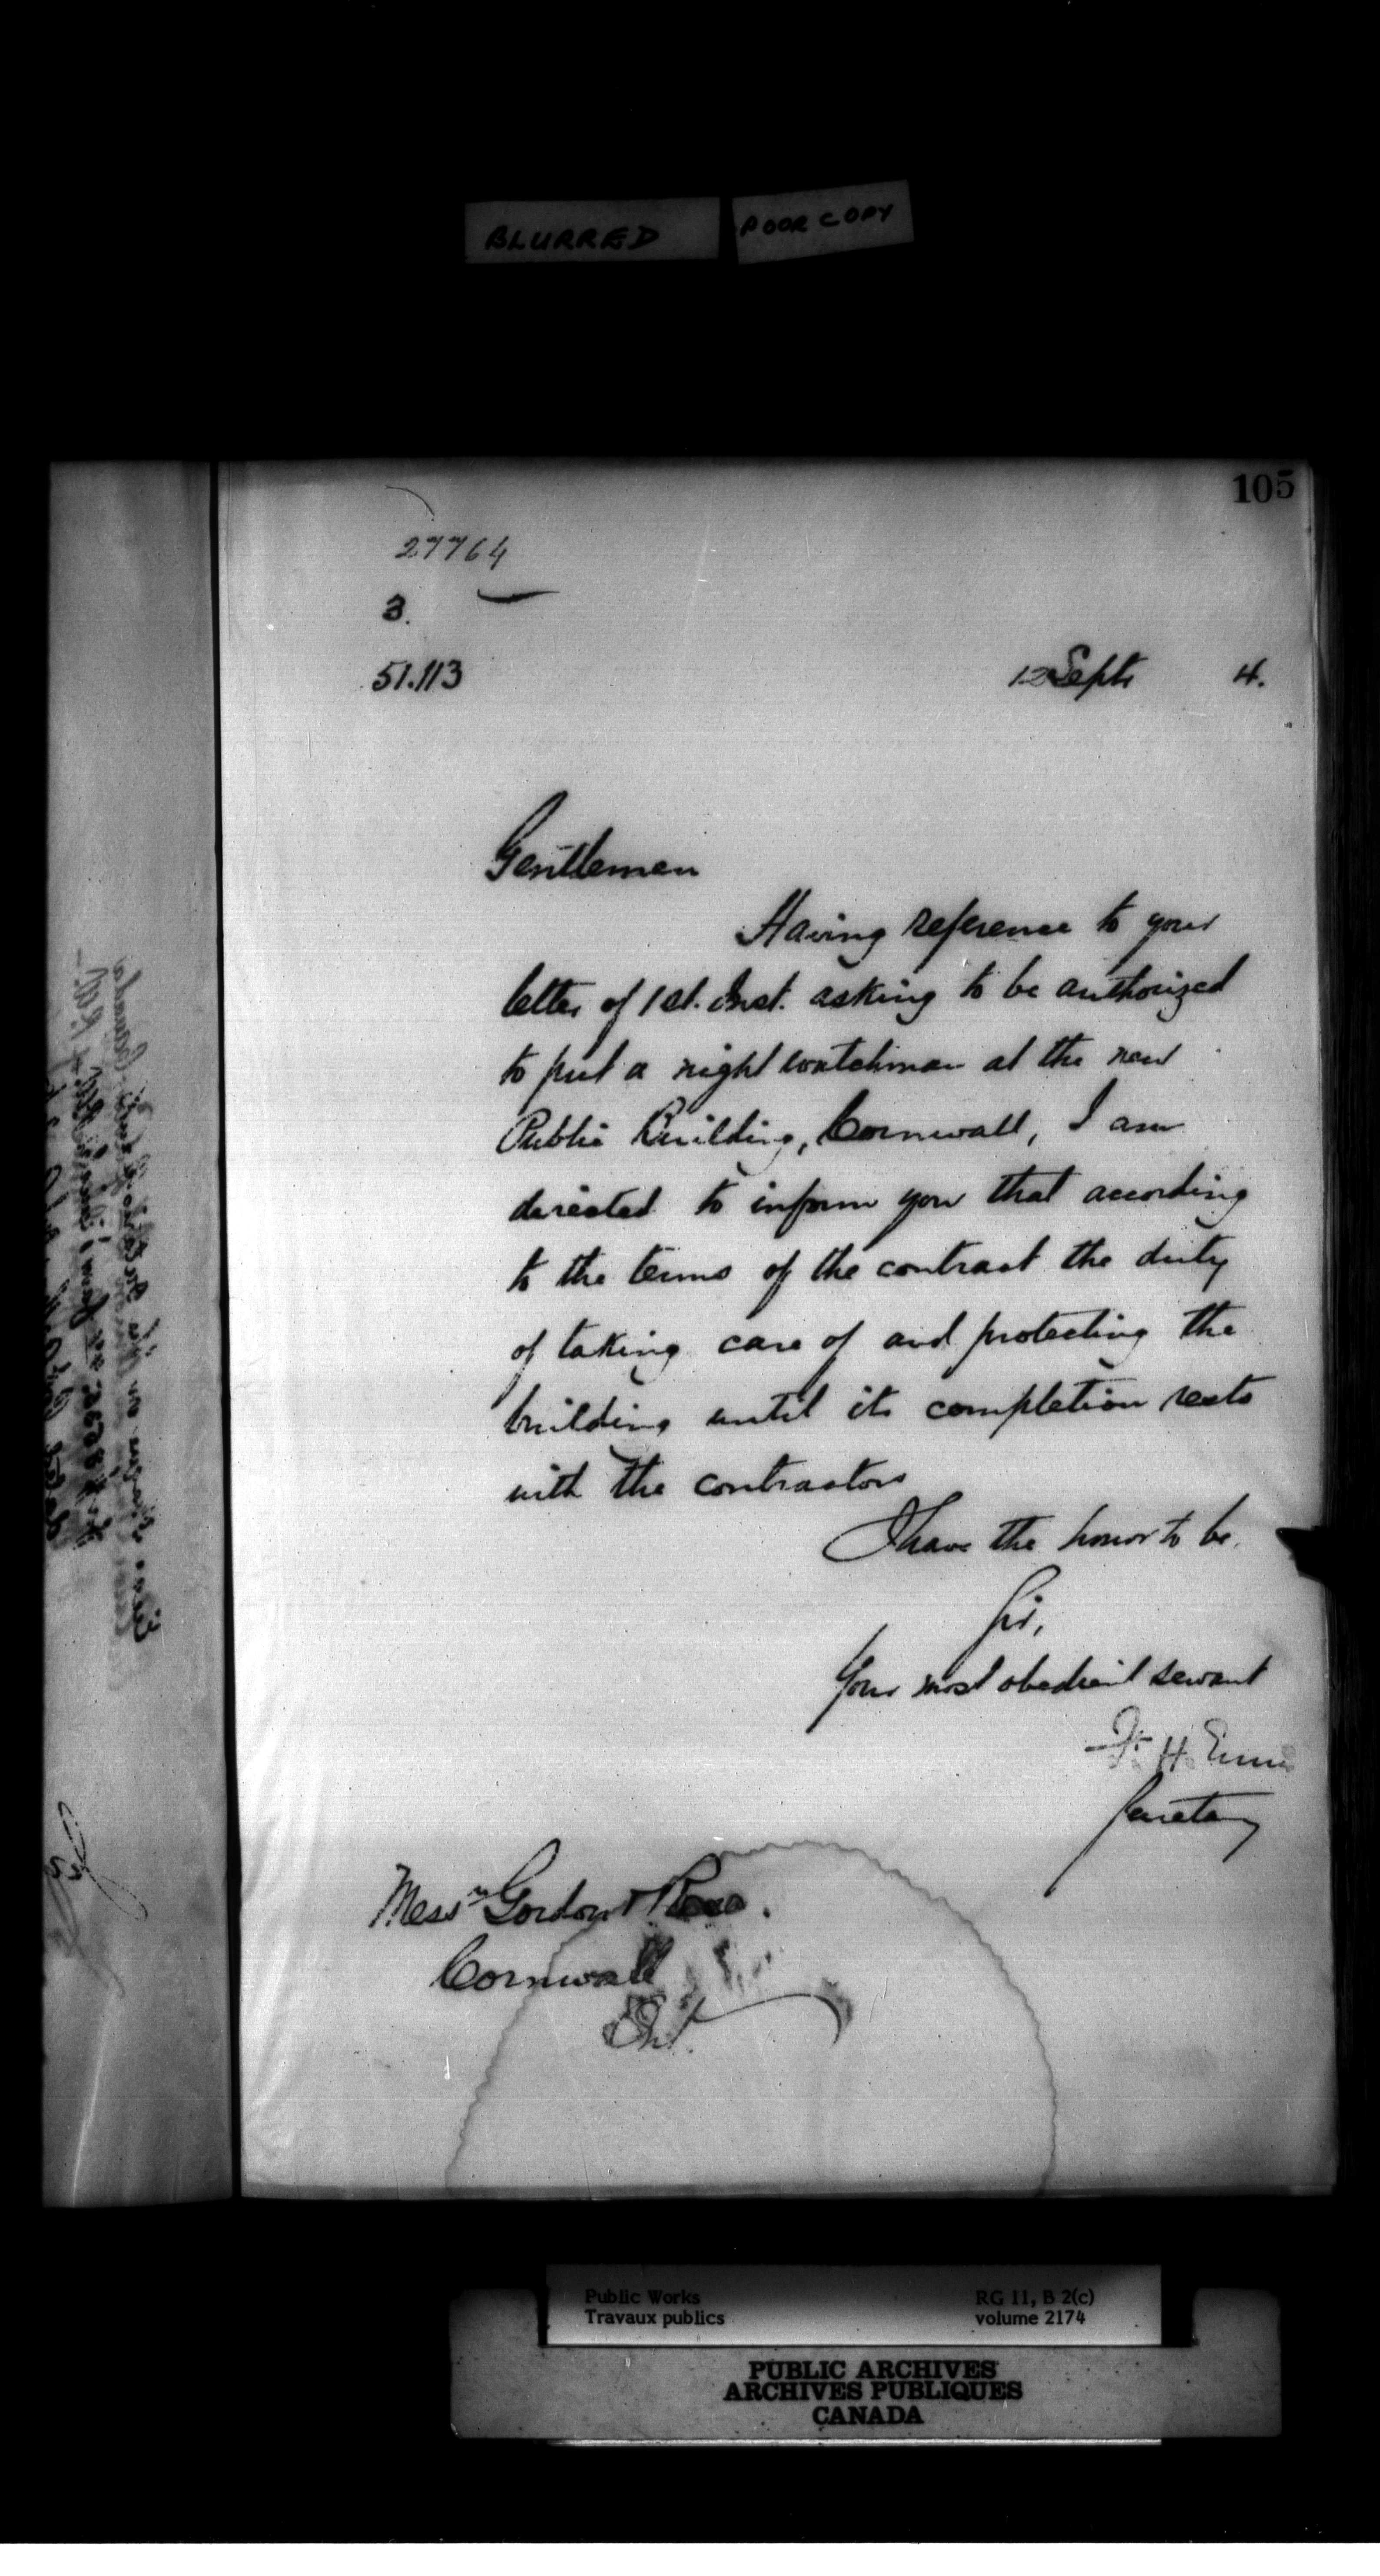 BLURRED POOR COPY
105
27764
3.
51.113
12 Sept. 4.
Gentlemen
Having reference to your
letter of 1st. Inst. asking to be authorized
to put a night watchman at the new
Public Building, Cornwall, I am
directed to inform you that according
to the terms of the contract the duty
of taking care of and protecting the
building until its completion rests
with the contractors
I have the honor to be.
Sir,
Your most obedient servant
F. H. Ennis
Secretary
Messrs Gordon &
Cornwall
Ont.
Public Works RG 11, B 2(c)
Travaux publics volume 2174
PUBLIC ARCHIVES
ARCHIVES PUBLIQUES
CANADA